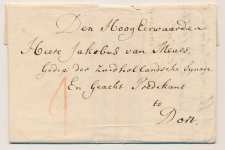 Den Hoog Eerwaarden
Heere Jakobus van Meurs
Gedep der Zuidhollandsche Synode
En Geacht Predikant
te
Dort.